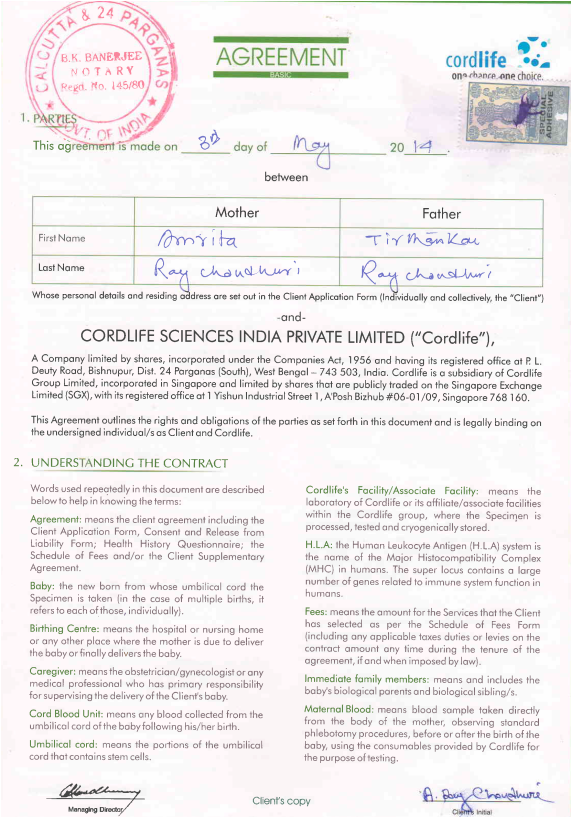 CALCUTTA & 24 PARGANAS
B.K. BANERJEE
NOTARY
Regd. No. 145/80
GOVT. OF INDIA
AGREEMENT
BASIC
cordlife
one chance. one choice.
SPECIAL
ADHESIVE
1. PARTIES
This agreement is made on 3rd day of May 2014.
between
Mother Father
First Name Amrita Tirthankar
Last Name Ray Chaudhuri Ray Chaudhuri
Whose personal details and residing address are set out in the Client Application Form (Individually and collectively, the "Client")
-and-
CORDLIFE SCIENCES INDIA PRIVATE LIMITED ("Cordlife"),
A Company limited by shares, incorporated under the Companies Act, 1956 and having its registered office at P. L.
Deuty Road, Bishnupur, Dist. 24 Parganas (South), West Bengal – 743 503, India. Cordlife is a subsidiary of Cordlife
Group Limited, incorporated in Singapore and limited by shares that are publicly traded on the Singapore Exchange
Limited (SGX), with its registered office at 1 Yishun Industrial Street 1, A'Posh Bizhub #06-01/09, Singapore 768 160.
This Agreement outlines the rights and obligations of the parties as set forth in this document and is legally binding on
the undersigned individual/s as Client and Cordlife.
2. UNDERSTANDING THE CONTRACT
Words used repeatedly in this document are described
below to help in knowing the terms:
Agreement: means the client agreement including the
Client Application Form, Consent and Release from
Liability Form; Health History Questionnaire; the
Schedule of Fees and/or the Client Supplementary
Agreement.
Baby: the new born from whose umbilical cord the
Specimen is taken (in the case of multiple births, it
refers to each of those, individually).
Birthing Centre: means the hospital or nursing home
or any other place where the mother is due to deliver
the baby or finally delivers the baby.
Caregiver: means the obstetrician/gynecologist or any
medical professional who has primary responsibility
for supervising the delivery of the Client's baby.
Cord Blood Unit: means any blood collected from the
umbilical cord of the baby following his/her birth.
Umbilical cord: means the portions of the umbilical
cord that contains stem cells.
Cordlife's Facility/Associate Facility: means the
laboratory of Cordlife or its affiliate/associate facilities
within the Cordlife group, where the Specimen is
processed, tested and cryogenically stored.
H.L.A: the Human Leukocyte Antigen (H.L.A) system is
the name of the Major Histocompatibility Complex
(MHC) in humans. The super locus contains a large
number of genes related to immune system function in
humans.
Fees: means the amount for the Services that the Client
has selected as per the Schedule of Fees Form
(including any applicable taxes duties or levies on the
contract amount any time during the tenure of the
agreement, if and when imposed by law).
Immediate family members: means and includes the
baby's biological parents and biological sibling/s.
Maternal Blood: means blood sample taken directly
from the body of the mother, observing standard
phlebotomy procedures, before or after the birth of the
baby, using the consumables provided by Cordlife for
the purpose of testing.
Managing Director
Client's copy
A. Ray Chaudhuri
Client's Initial